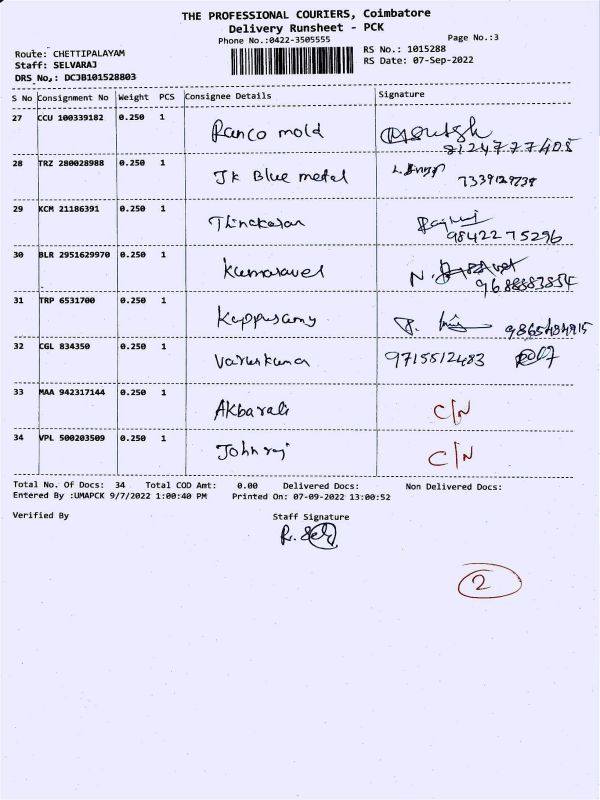 THE PROFESSIONAL COURIERS, Coimbatore
Delivery Runsheet - PCK
Phone No.:0422-3505555
Page No.:3
Route: CHETTIPALAYAM
RS No.: 1015288
Staff: SELVARAJ
RS Date: 07-Sep-2022
DRS_No,: DCJB101528803
S No Consignment No Weight PCS Consignee Details Signature
27 CCU 100339182 0.250 1 Ranco mold 8124777405
28 TRZ 280028988 0.250 1 Jk Blue metal 7339129739
29 KCM 21186391 0.250 1 Thinckaran 9842275296
30 BLR 2951629970 0.250 1 Kumaravel 9688883854
31 TRP 6531700 0.250 1 Kuppusamy 9865484915
32 CGL 834350 0.250 1 Varunkumar 9715512483
33 MAA 942317144 0.250 1 Akbarali C/N
34 VPL 500203509 0.250 1 Johnraj C/N
Total No. Of Docs: 34 Total COD Amt: 0.00 Delivered Docs: Non Delivered Docs:
Entered By :UMAPCK 9/7/2022 1:00:40 PM Printed On: 07-09-2022 13:00:52
Verified By Staff Signature
2